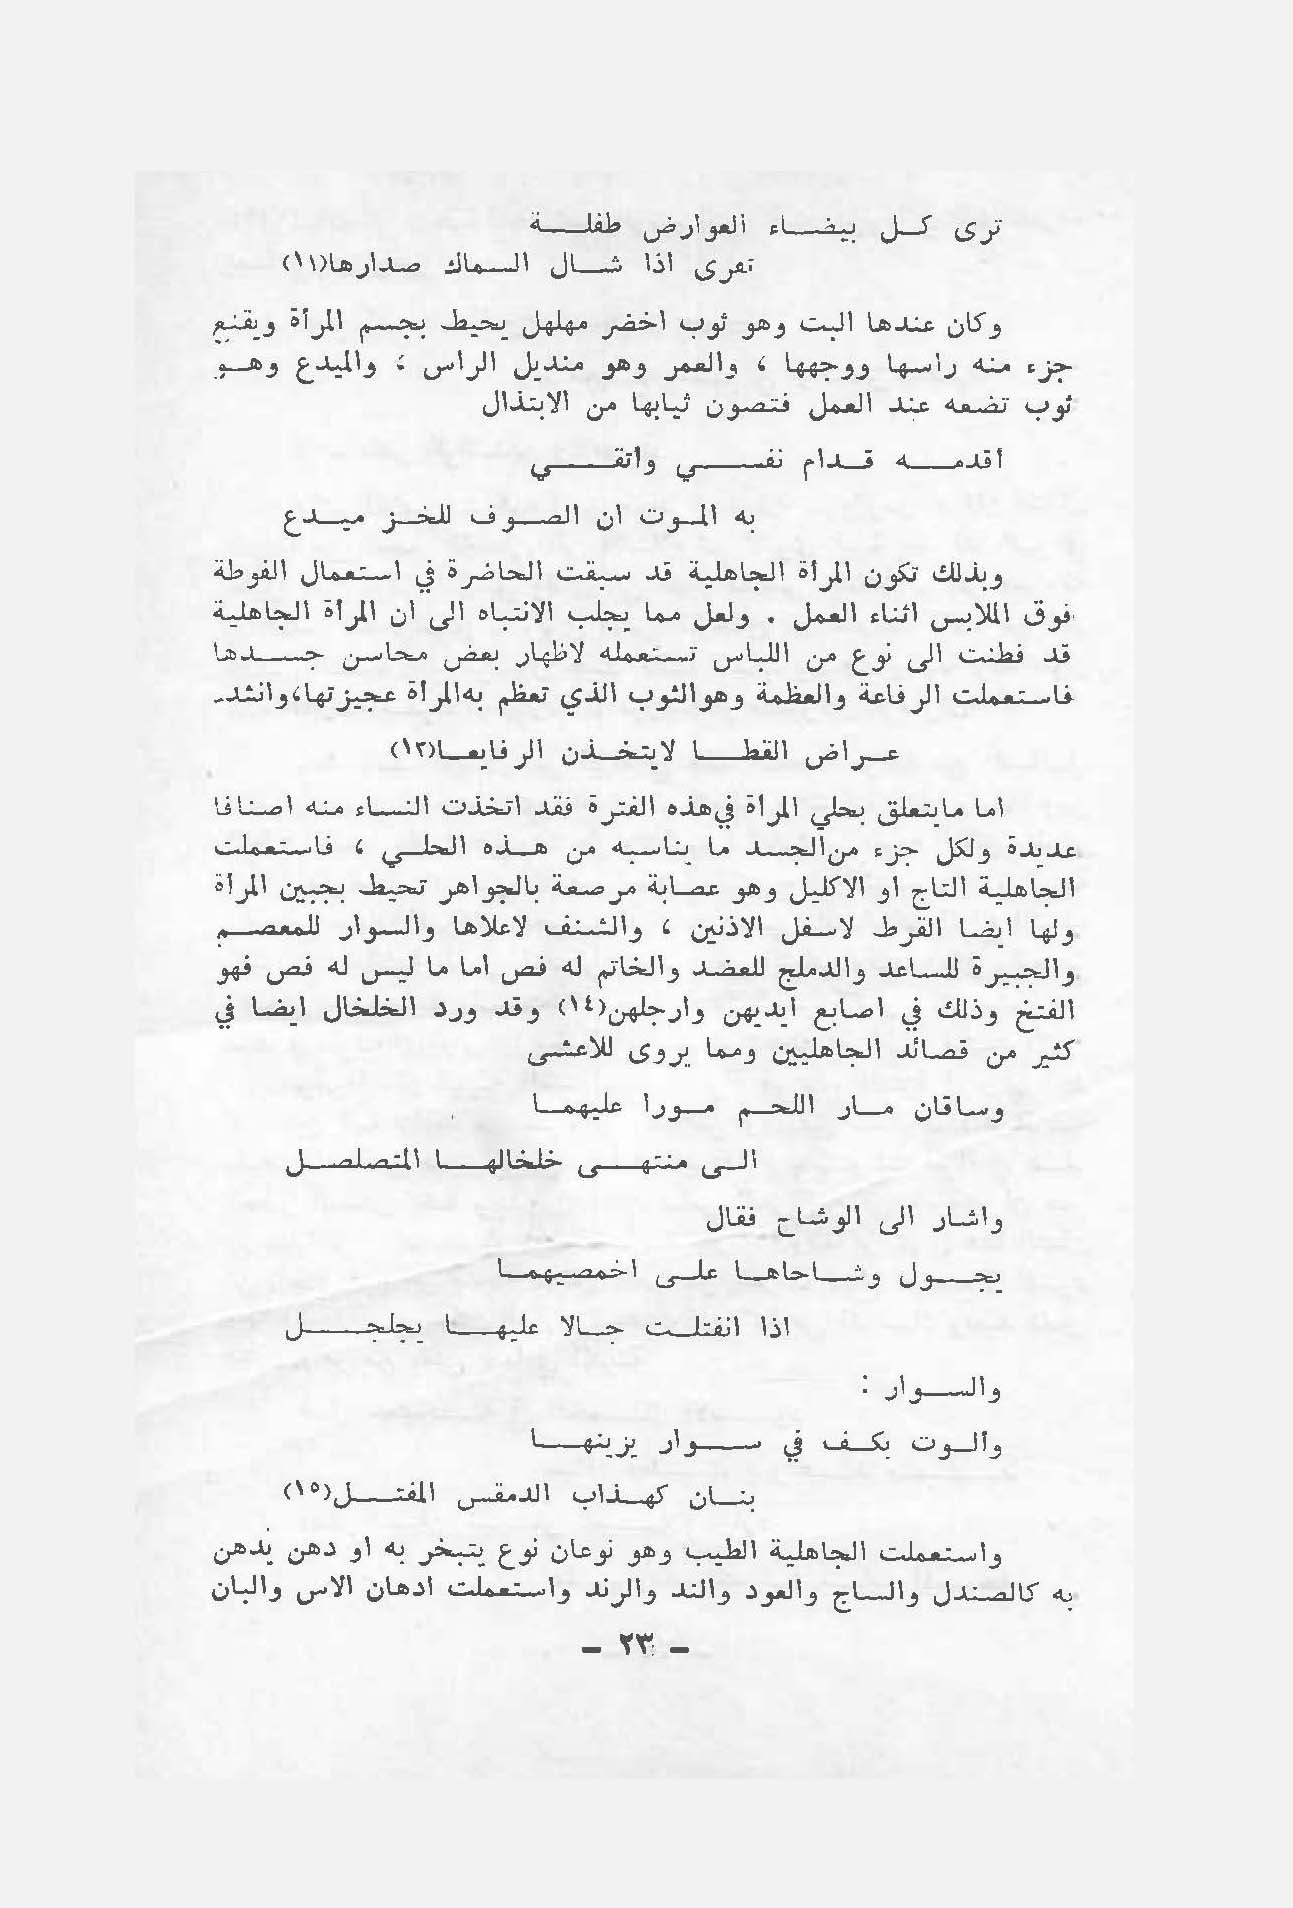 ترى كل بيضاء العوارض طفلة
تفرى اذا شال السماك صدارها(١١)
وكان عندها البت وهو ثوب اخضر مهلهل يحيط بجسم المرأة ويقنع
جزء منه راسها ووجهها ، والعمر وهو منديل الراس ، والميدع وهو
ثوب تضعه عند العمل فتصون ثيابها من الابتذال
أقدمه قدام نفسي وأتقي
به الموت ان الصوف للخز ميدع
وبذلك تكون المرأة الجاهلية قد سبقت الحاضرة في استعمال الفوطة
فوق الملابس اثناء العمل . ولعل مما يجلب الانتباه الى ان المرأة الجاهلية
قد فطنت الى نوع من اللباس تستعمله لاظهار بعض محاسن جسدها
فاستعملت الرفاعة والعظمة وهوالثوب الذي تعظم بهالمرأة عجيزتها،وانشد.
عراض القطا لايتخذن الرفايعا(١٣)
اما مايتعلق بحلي المرأة فيهذه الفترة فقد اتخذت النساء منه اصنافا
عديدة ولكل جزء منالجسد ما يناسبه من هذه الحلي ، فاستعملت
الجاهلية التاج او الاكليل وهو عصابة مرصعة بالجواهر تحيط بجبين المرأة
ولها ايضا القرط لاسفل الاذنين ، والشنف لاعلاها والسوار للمعصم
والجبيرة للساعد والدملج للعضد والخاتم له فص اما ما ليس له فص فهو
الفتخ وذلك في اصابع ايديهن وارجلهن(١٤) وقد ورد الخلخال ايضا في
كثير من قصائد الجاهليين ومما يروى للاعشى
وساقان مار اللحم مورا عليهما
الى منتهى خلخالها المتصلصل
واشار الى الوشاح فقال
يجول وشاحاها على اخمصيهما
اذا انفتلت جالا عليها يجلجل
والسوار :
وألوت بكف في سوار يزينها
بنان كهذاب الدمقس المفتل(١٥)
واستعملت الجاهلية الطيب وهو نوعان نوع يتبخر به او دهن يدهن
به كالصندل والساج والعود والند والرند واستعملت ادهان الاس والبان
- ٢٣ -